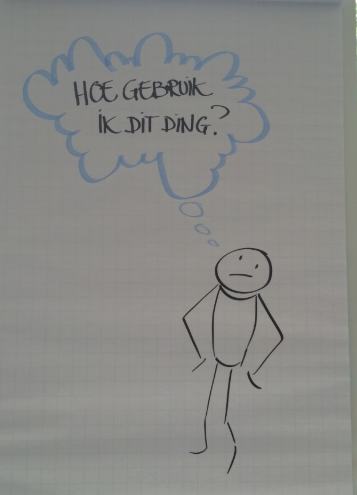 HOE GEBRUIK
IK DIT DING?